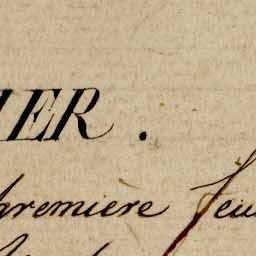 IER.
première feu